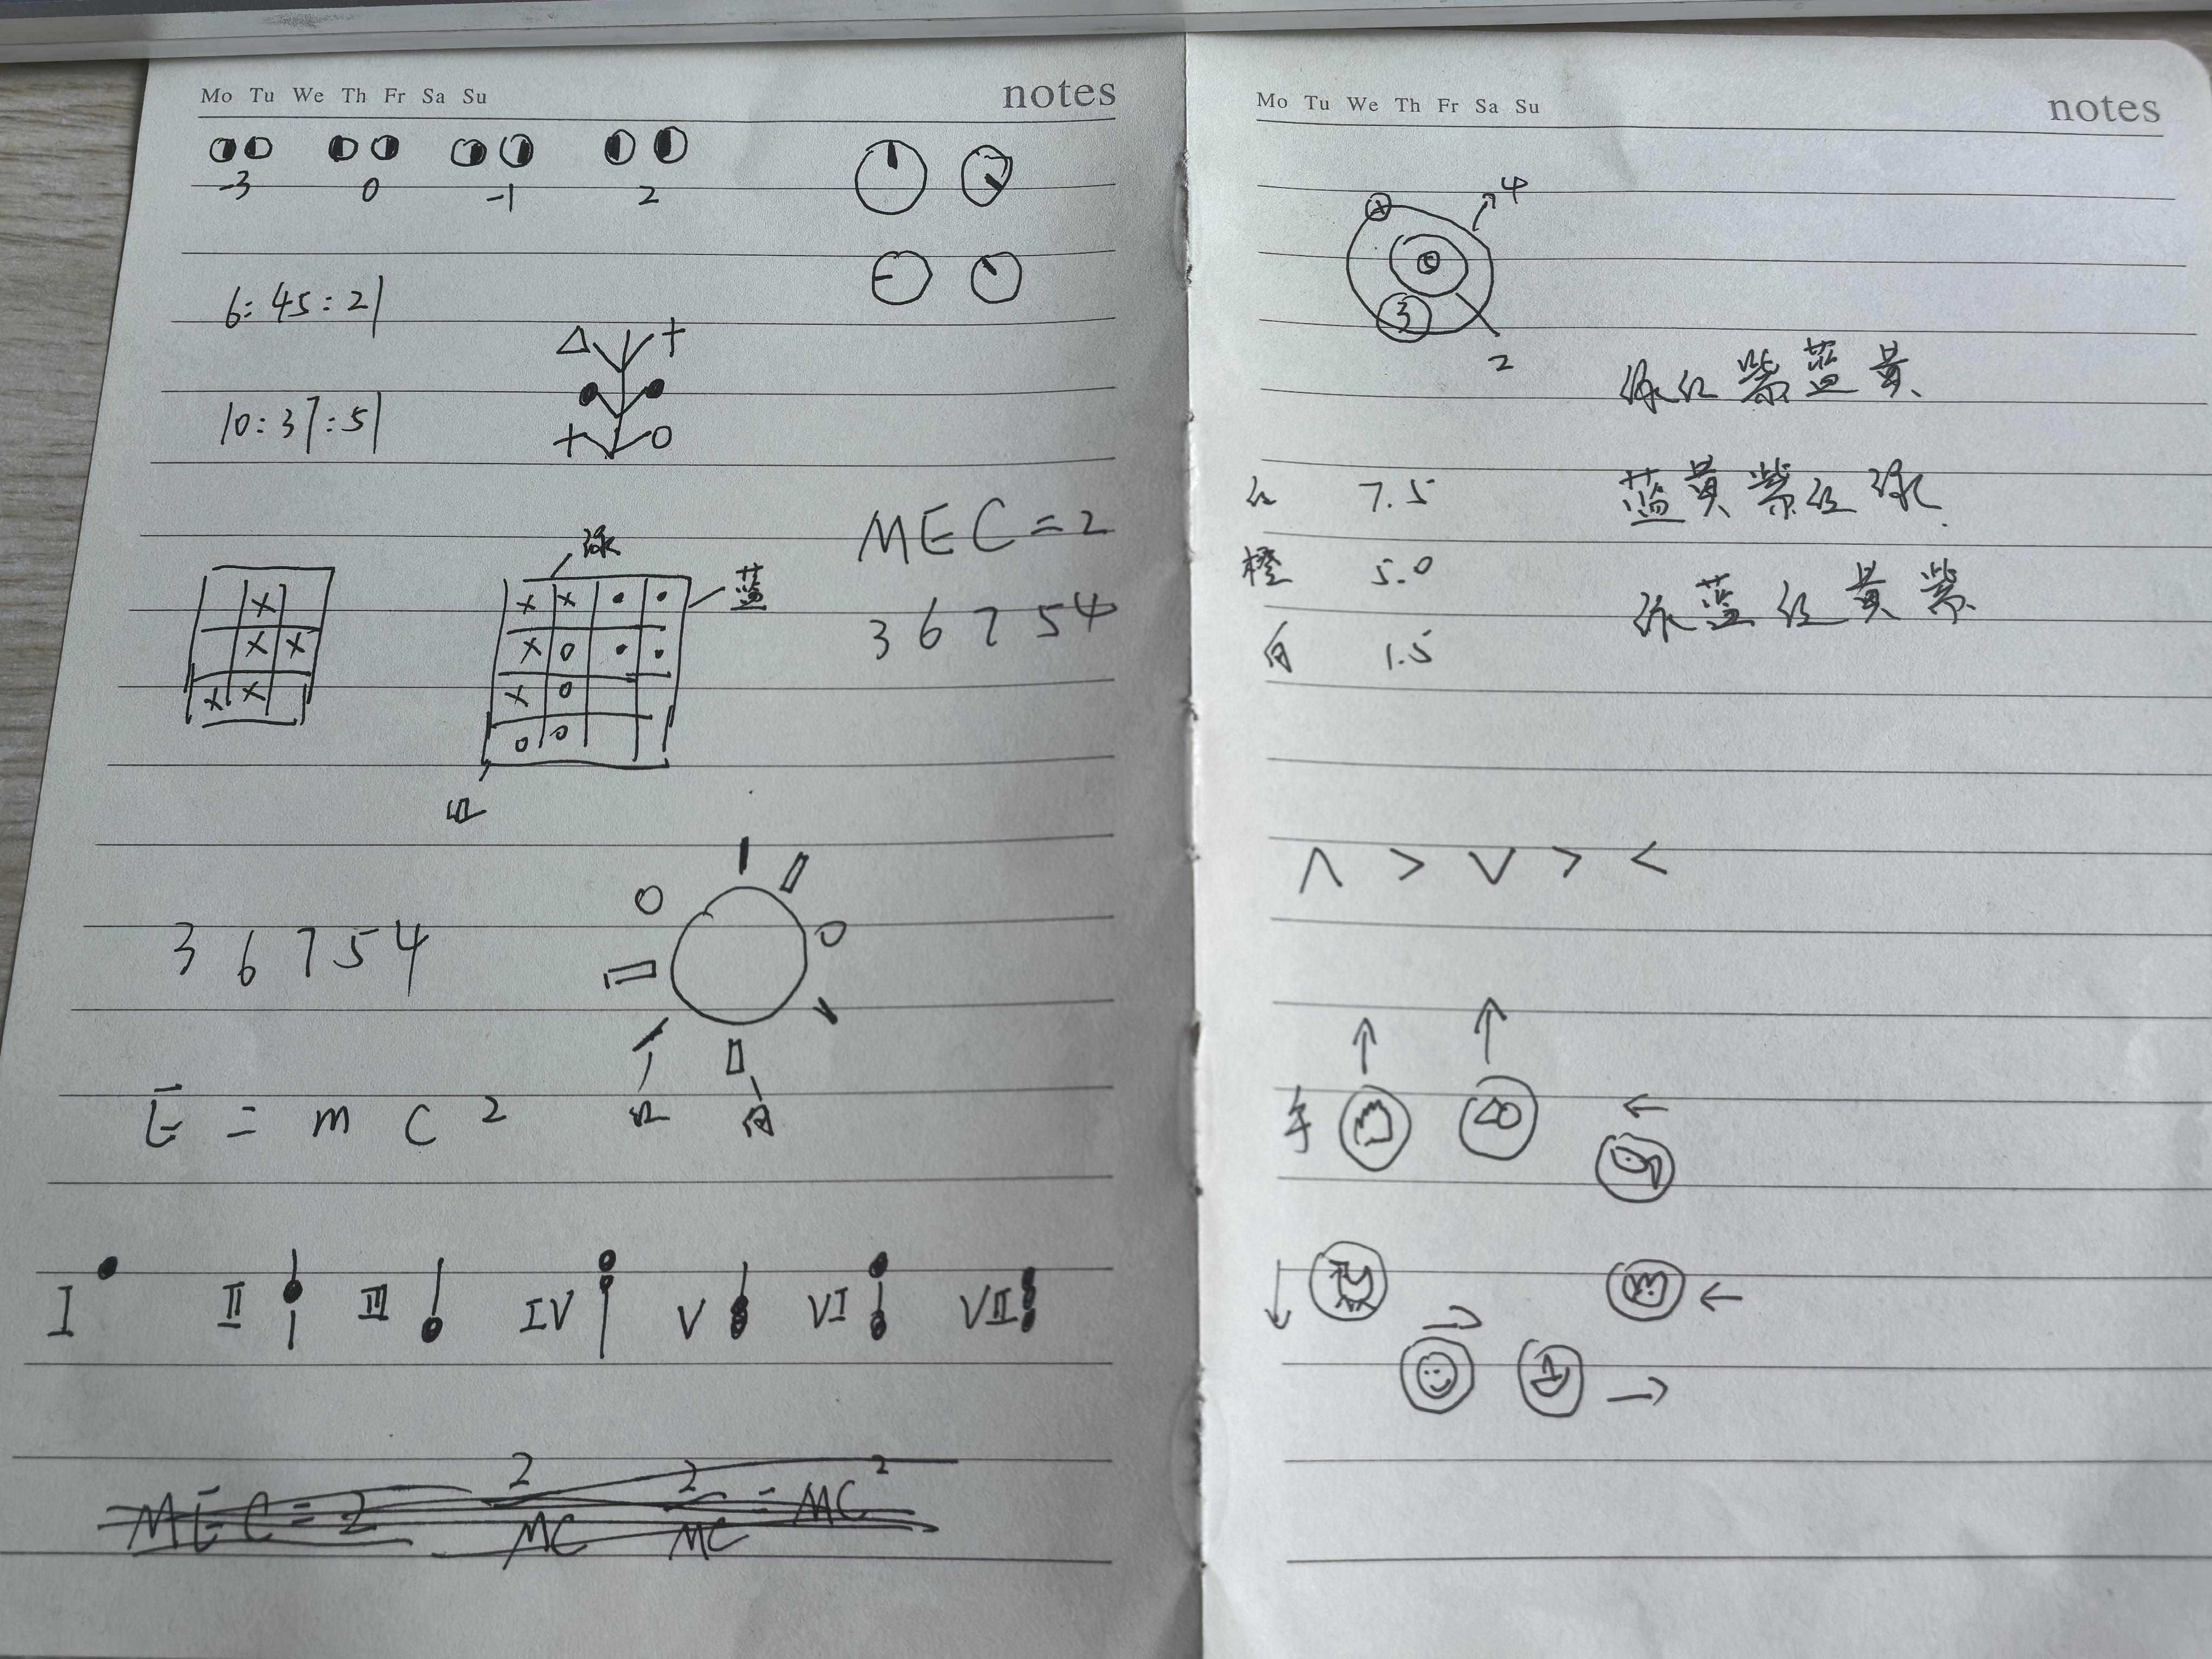 Mo Tu We Th Fr Sa Su
notes
-3 0 -1 2
6:45:21
10:37:51
MEC=2
绿
蓝
3 6 7 5 4
红
3 6 7 5 4
E = m c 2
红 白
I II III IV V VI VII
Mo Tu We Th Fr Sa Su
notes
4
3
2
绿红紫蓝黄
红 7.5
蓝黄紫红绿
橙 5.0
绿蓝红黄紫
白 1.5
∧ > ∨ > <
手